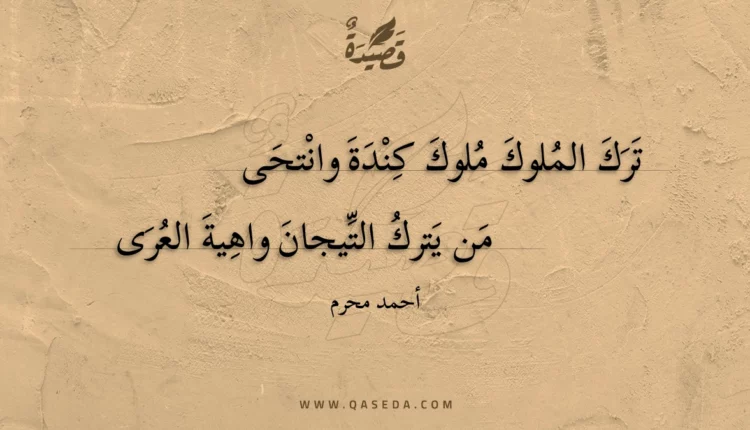 قَصِيْدَةٌ
تَرَكَ المُلوكَ مُلوكَ كِنْدَةَ وانْتحَى
مَن يَتركُ التِّيجانَ واهِيةَ العُرَى
أحمد محرم
WWW.QASEDA.COM